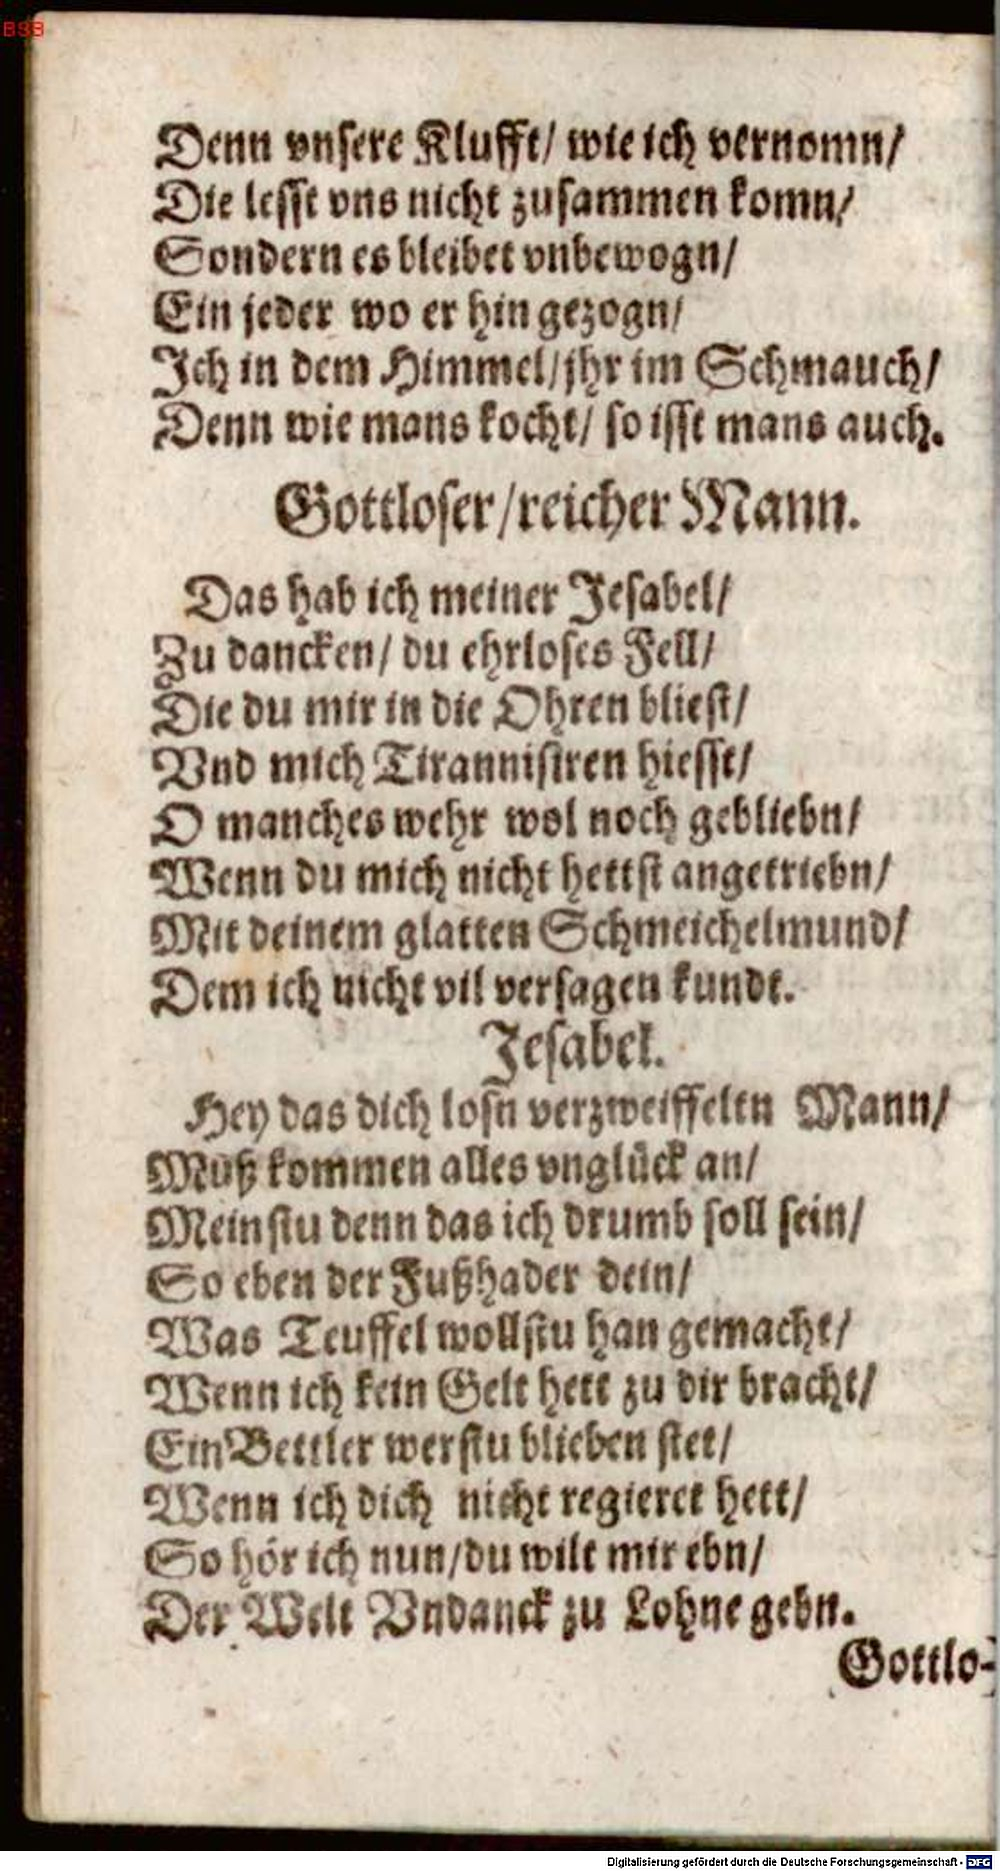 BSB
Denn vnsere Klufft/ wie ich vernomn/
Die lesst vns nicht zusammen komn/
Sondern es bleibet vnbewogn/
Ein jeder wo er hin gezogn/
Ich in dem Himmel/jhr im Schmauch/
Denn wie mans kocht/ so isst mans auch.
Gottloser/reicher Mann.
Das hab ich meiner Jesabel/
Zu dancken/ du ehrloses Fell/
Die du mir in die Ohren bliest/
Vnd mich Tirannisiren hiesst/
O manches wehr wol noch gebliebn/
Wenn du mich nicht hettst angetriebn/
Mit deinem glatten Schmeichelmund/
Dem ich nicht vil versagen kundt.
Jesabel.
Hey das dich losn verzweiffeltn Mann/
Muß kommen alles vnglück an/
Meinstu denn das ich drumb soll sein/
So eben der Fußhader dein/
Was Teuffel wollstu han gemacht/
Wenn ich kein Gelt hett zu dir bracht/
Ein Bettler werstu blieben stet/
Wenn ich dich nicht regieret hett/
So hör ich nun/du wilt mir ebn/
Der Welt Vndanck zu Lohne gebn.
Gottlo-
Digitalisierung gefördert durch die Deutsche Forschungsgemeinschaft - DFG